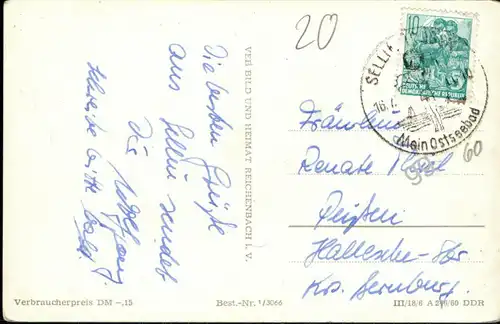 20
Die besten Grüße
aus Sellin sendet
Dir Wolfgang.
Schreibe bitte bald.
VEB BILD UND HEIMAT REICHENBACH I. V.
10
DEUTSCHE
DEMOKRATISCHE REPUBLIK
SELLIN
16.7.
Mein Ostseebad
Fräulein
Renate
60
Hallesche-Str
Krs. Bernburg
Verbraucherpreis DM -.15
Best.-Nr. 1/3066
III/18/6 A 299/60 DDR